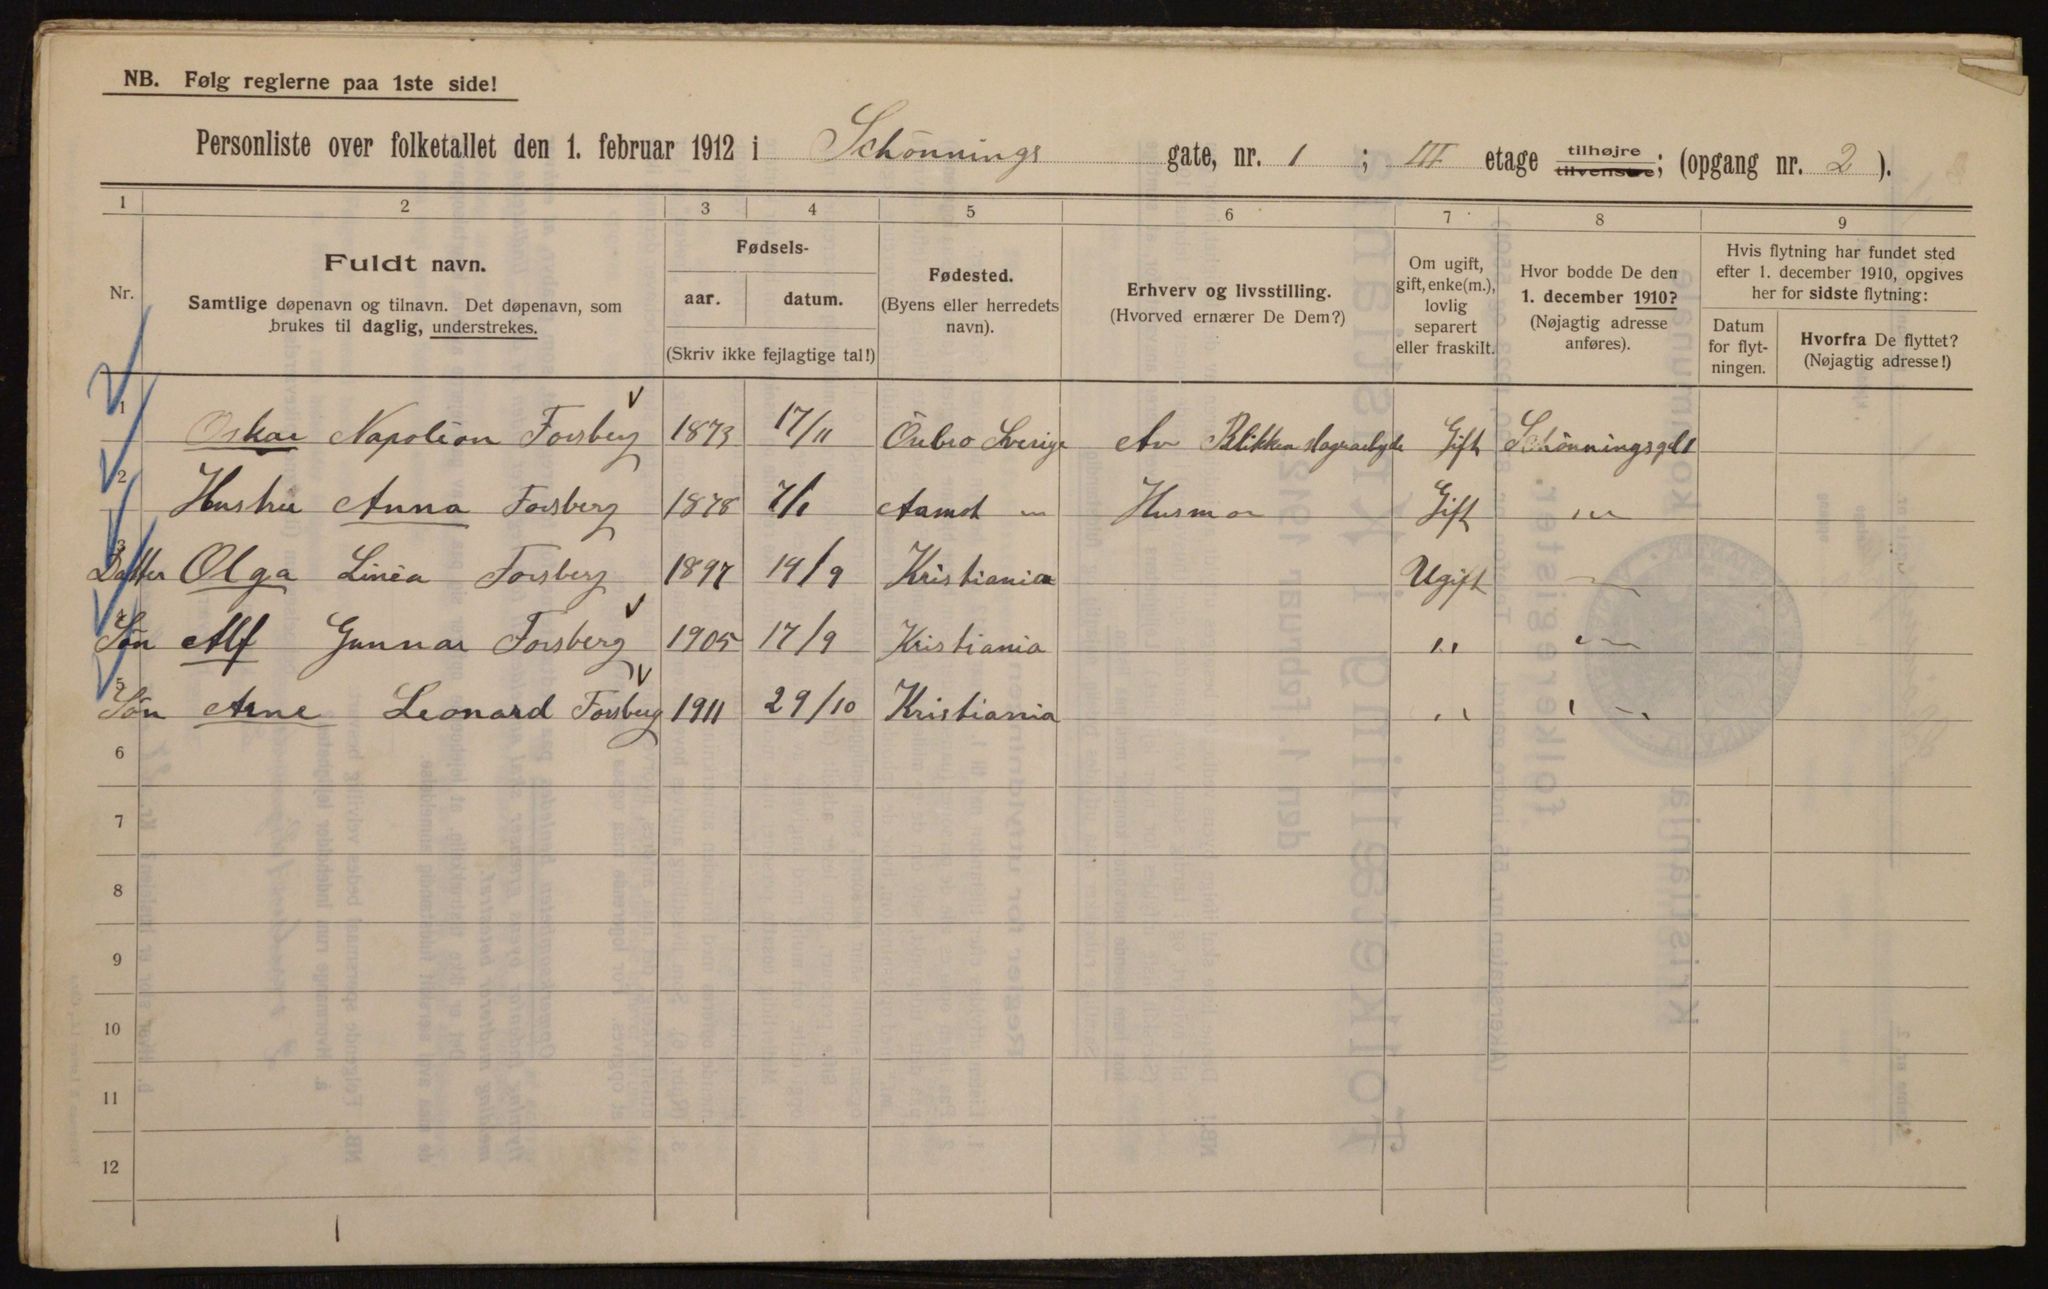 NB. Følg reglerne paa 1ste side!
Personliste over folketallet den 1. februar 1912 i Schönnings gate, nr. 1 ; III etage tilhøjre tilvenstre; (opgang nr. 2 ).
1 2 3 4 5 6 7 8 9
Nr.
Fuldt navn.
Samtlige døpenavn og tilnavn. Det døpenavn, som
brukes til daglig, understrekes.
Fødsels-
aar. datum.
(Skriv ikke fejlagtige tal!)
Fødested.
(Byens eller herredets
navn).
Erhverv og livsstilling.
(Hvorved ernærer De Dem?)
Om ugift,
gift, enke(m.),
lovlig
separert
eller fraskilt.
Hvor bodde De den
1. december 1910?
(Nøjagtig adresse
anføres).
Hvis flytning har fundet sted
efter 1. december 1910, opgives
her for sidste flytning:
Datum
for flyt-
ningen.
Hvorfra De flyttet?
(Nøjagtig adresse!)
1 Oskar Napoleon Forsberg 1873 17/11 Örebro Sverige Gift Schönningsgd 1
2 Hustru Anna Forsberg 1878 7/1 Aamot Gift
3 Datter Olga Linéa Forsberg 1897 19/9 Kristiania Ugift
4 Sön Alf Gunnar Forsberg 1905 17/9 Kristiania
5 Sön Arne Leonard Forsberg 1911 29/10 Kristiania
6
7
8
9
10
11
12